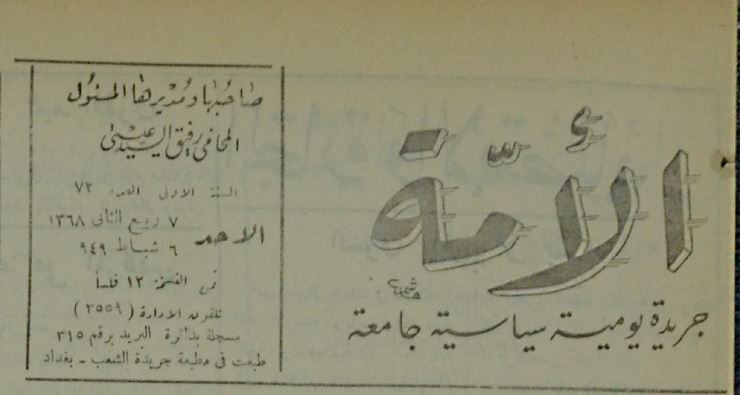 الأمّة
جريدة يومية سياسية جامعة
صاحبها ومديرها المسئول
المحامي رفيق السيد عيسى
السنة الاولى العدد ٧٢
الاحد
٧ ربيع الثاني ١٣٦٨
٦ شباط ٩٤٩
ثمن النسخة ١٢ فلسا
تلفون الادارة (٣٥٥٩)
مسجلة بدائرة البريد برقم ٣١٥
طبعت في مطبعة جريدة الشعب - بغداد